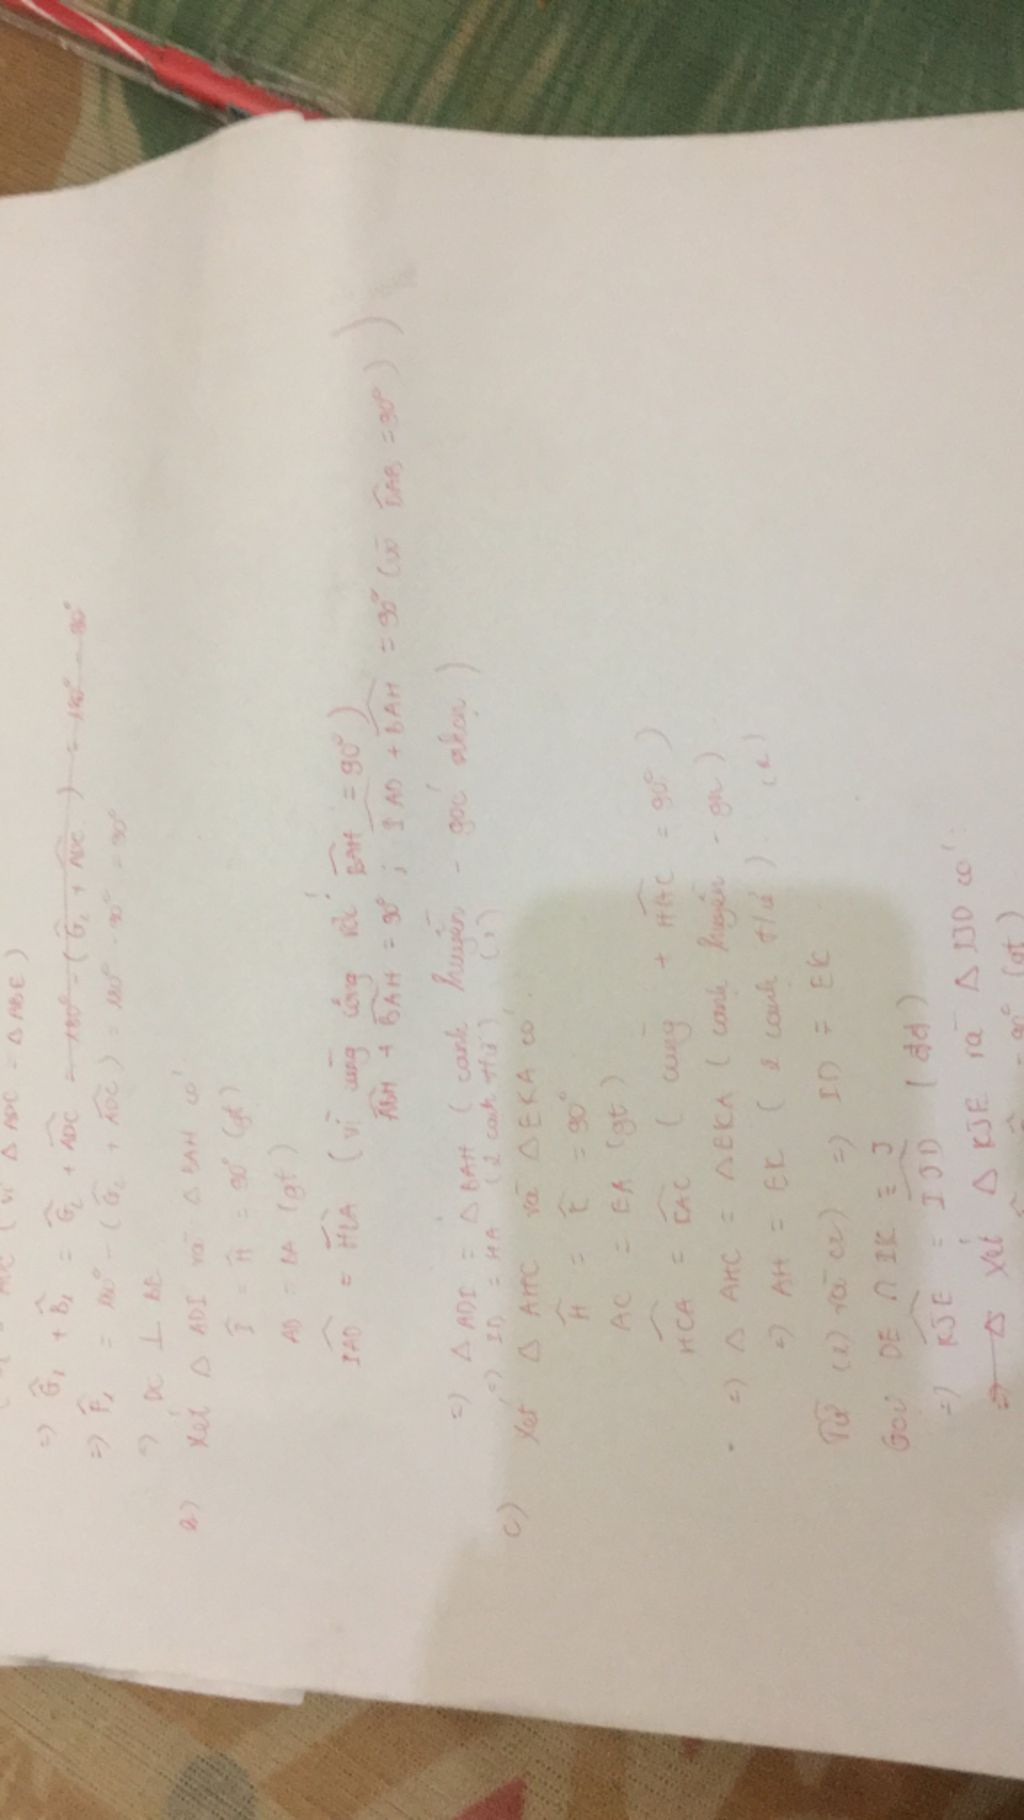 ADC ( vì Δ ADC = Δ ABE )
=> G₁ + B₁ = G₂ + ADC = 180° - ( G₂ + ADC ) = 180° - 90°
=> F₁ = 180° - ( G₂ + ADC ) = 180° - 90° = 90°
=> DC ⊥ BE
Xét Δ ADI và Δ BAH có :
I = H = 90° (gt)
AD = BA (gt)
( vì cùng cộng với BAH = 90° )
ABH + BAH = 90° ; IAD + BAH = 90° ( vì DAB = 90° ) )
=> Δ ADI = Δ BAH ( cạnh huyền - góc nhọn )
=> ID = HA ( 2 cạnh t/ứ ) (1)
c) Xét Δ AHC và Δ EKA có :
H = K = 90°
AC = EA (gt)
HCA = KAC ( cùng + HAC = 90° )
=> Δ AHC = Δ EKA ( cạnh huyền - gn )
=> AH = EK ( 2 cạnh t/ứ ) (2)
Từ (1) và (2) => ID = EK
Gọi DE ∩ IK ≡ J
=> KJE = IJD ( đđ )
=> Δ Xét Δ KJE và Δ IJD có :
= 90° (gt)